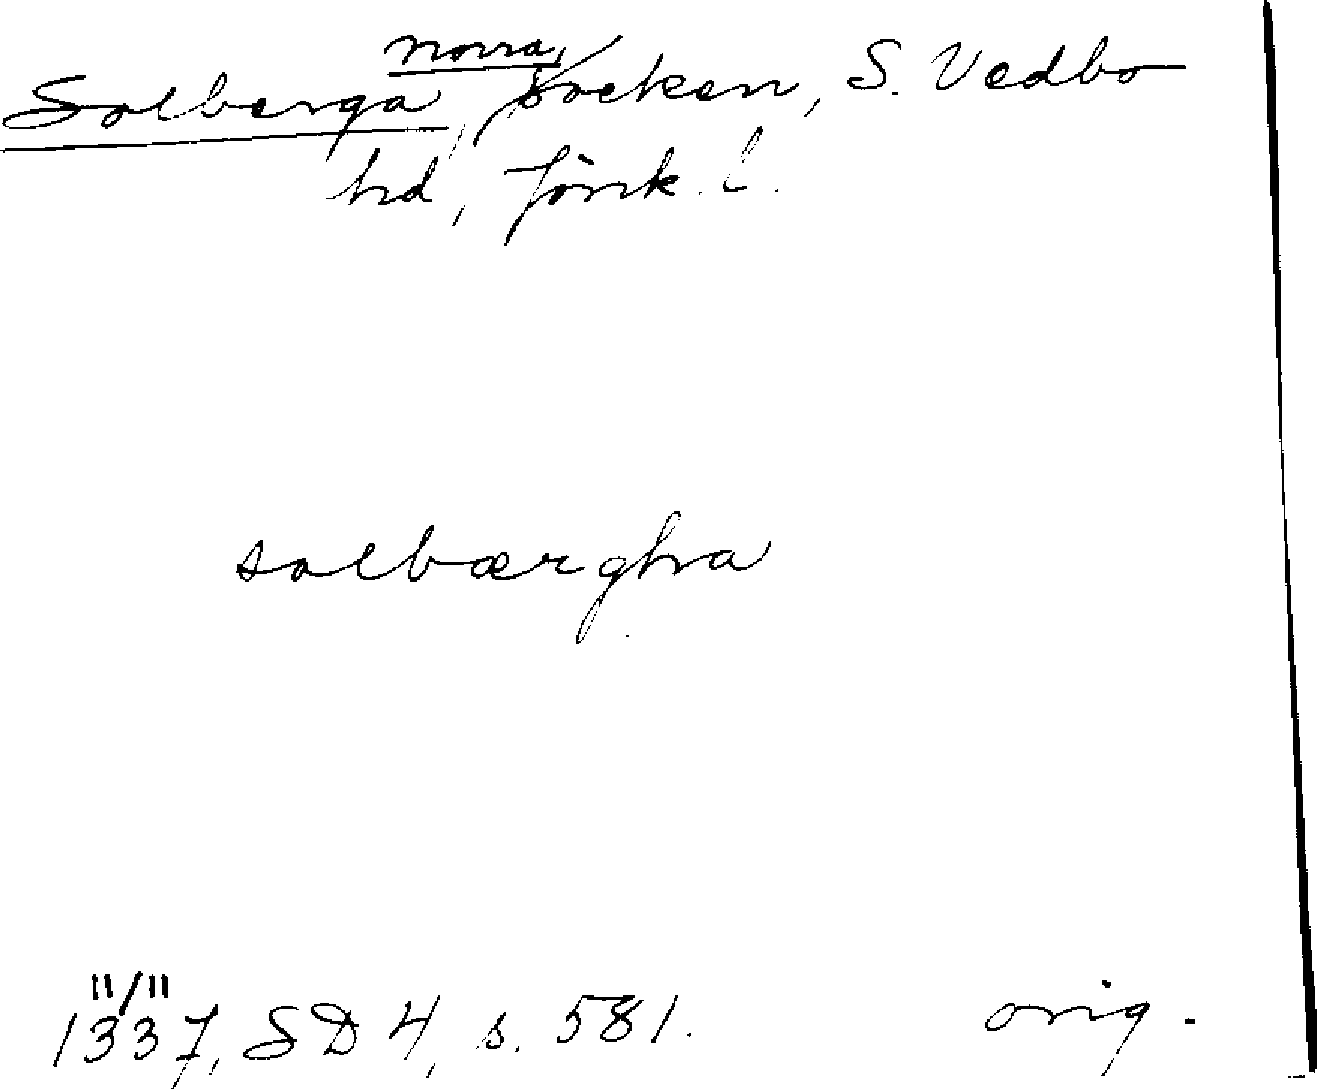 Norra,
Solberga, socken, S. Vedbo
hd, Jönk. l.
solbærgha
11/11
1337, SD 4, s. 581. orig.